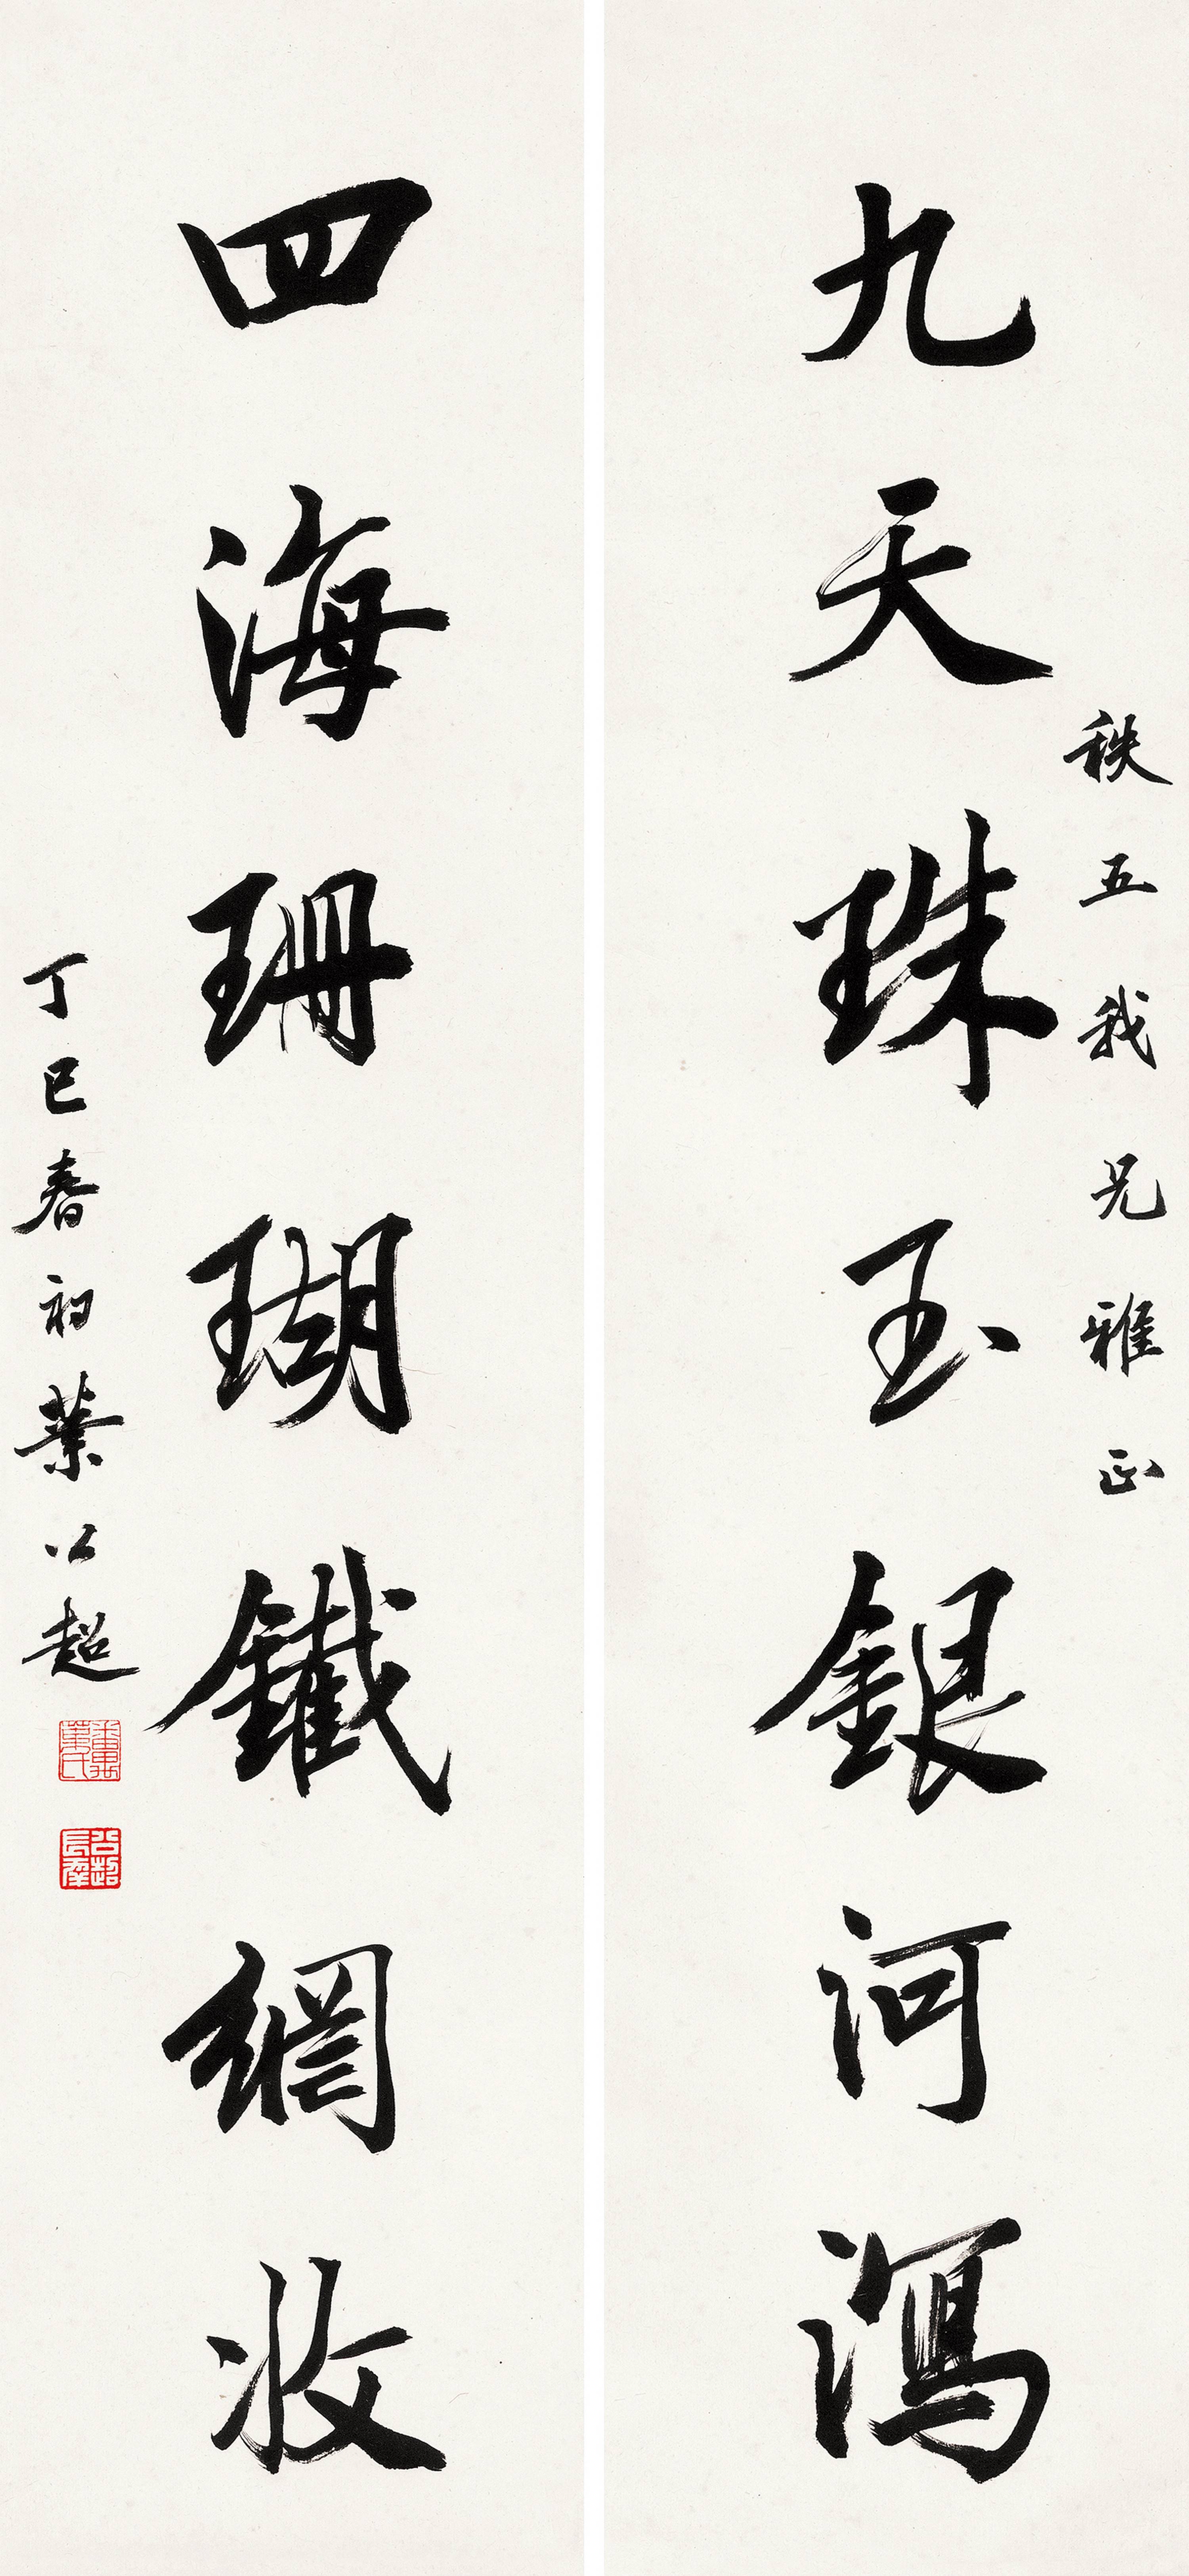 秩五我兄雅正
九天珠玉銀河瀉
四海珊瑚鐵網收
丁巳春初葉公超
葉氏
公超長壽